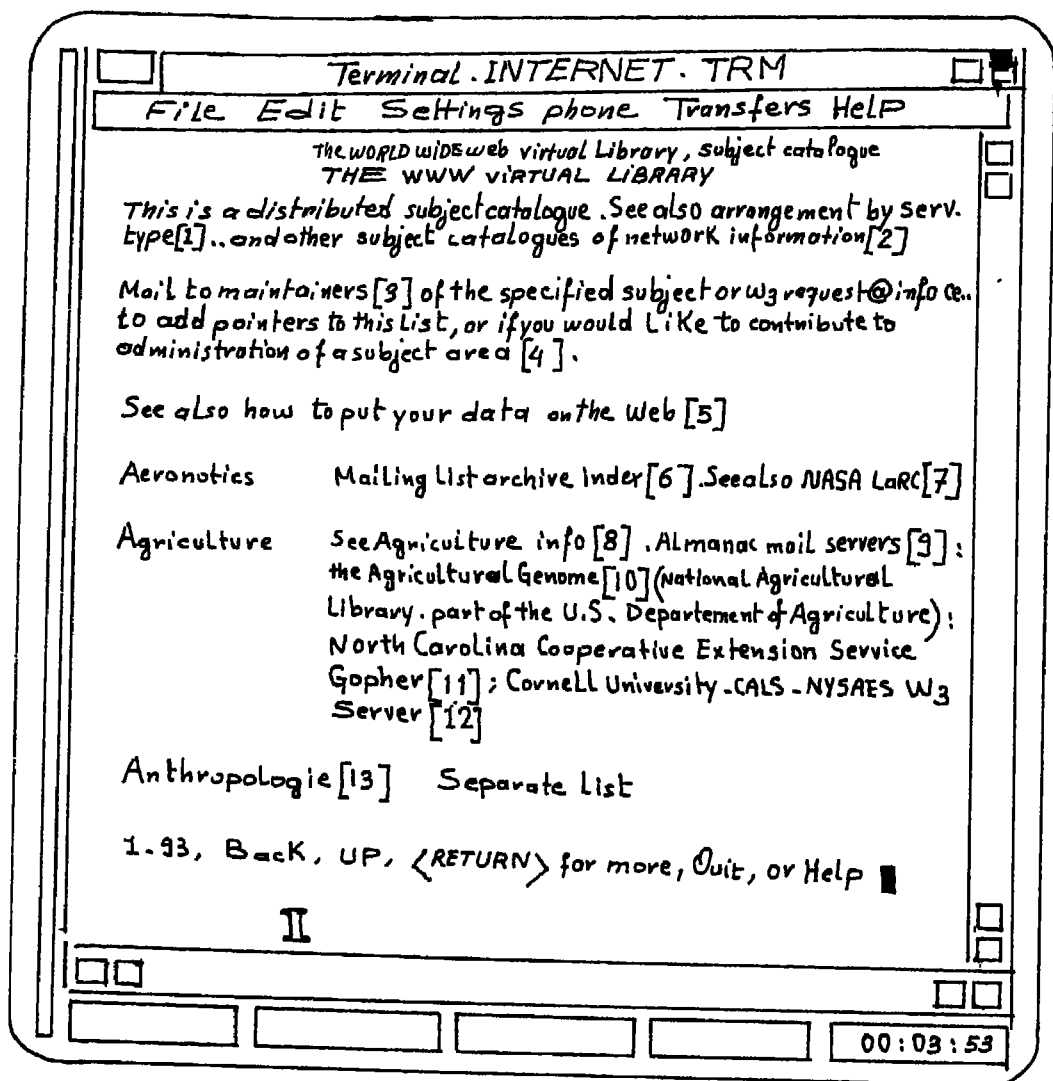 Terminal.INTERNET.TRM
File Edit Settings phone Transfers Help
The WORLD WIDE web virtual Library, subject catalogue
THE WWW VIRTUAL LIBRARY
This is a distributed subject catalogue. See also arrangement by serv.
type[1].. and other subject catalogues of network information[2]
Mail to maintainers[3] of the specified subject or W3 request@info ce..
to add pointers to this List, or if you would Like to contribute to
administration of a subject area [4].
See also how to put your data on the Web [5]
Aeronotics Mailing List archive Index[6]. See also NASA LaRC[7]
Agriculture See Agriculture info [8]. Almanac mail servers [9]:
the Agricultural Genome[10](National Agricultural
Library. part of the U.S. Departement of Agriculture):
North Carolina Cooperative Extension Service
Gopher[11]; Cornell University-CALS-NYSAES W3
Server[12]
Anthropologie[13] Separate List
1-93, Back, UP, <RETURN> for more, Quit, or Help
00:03:53